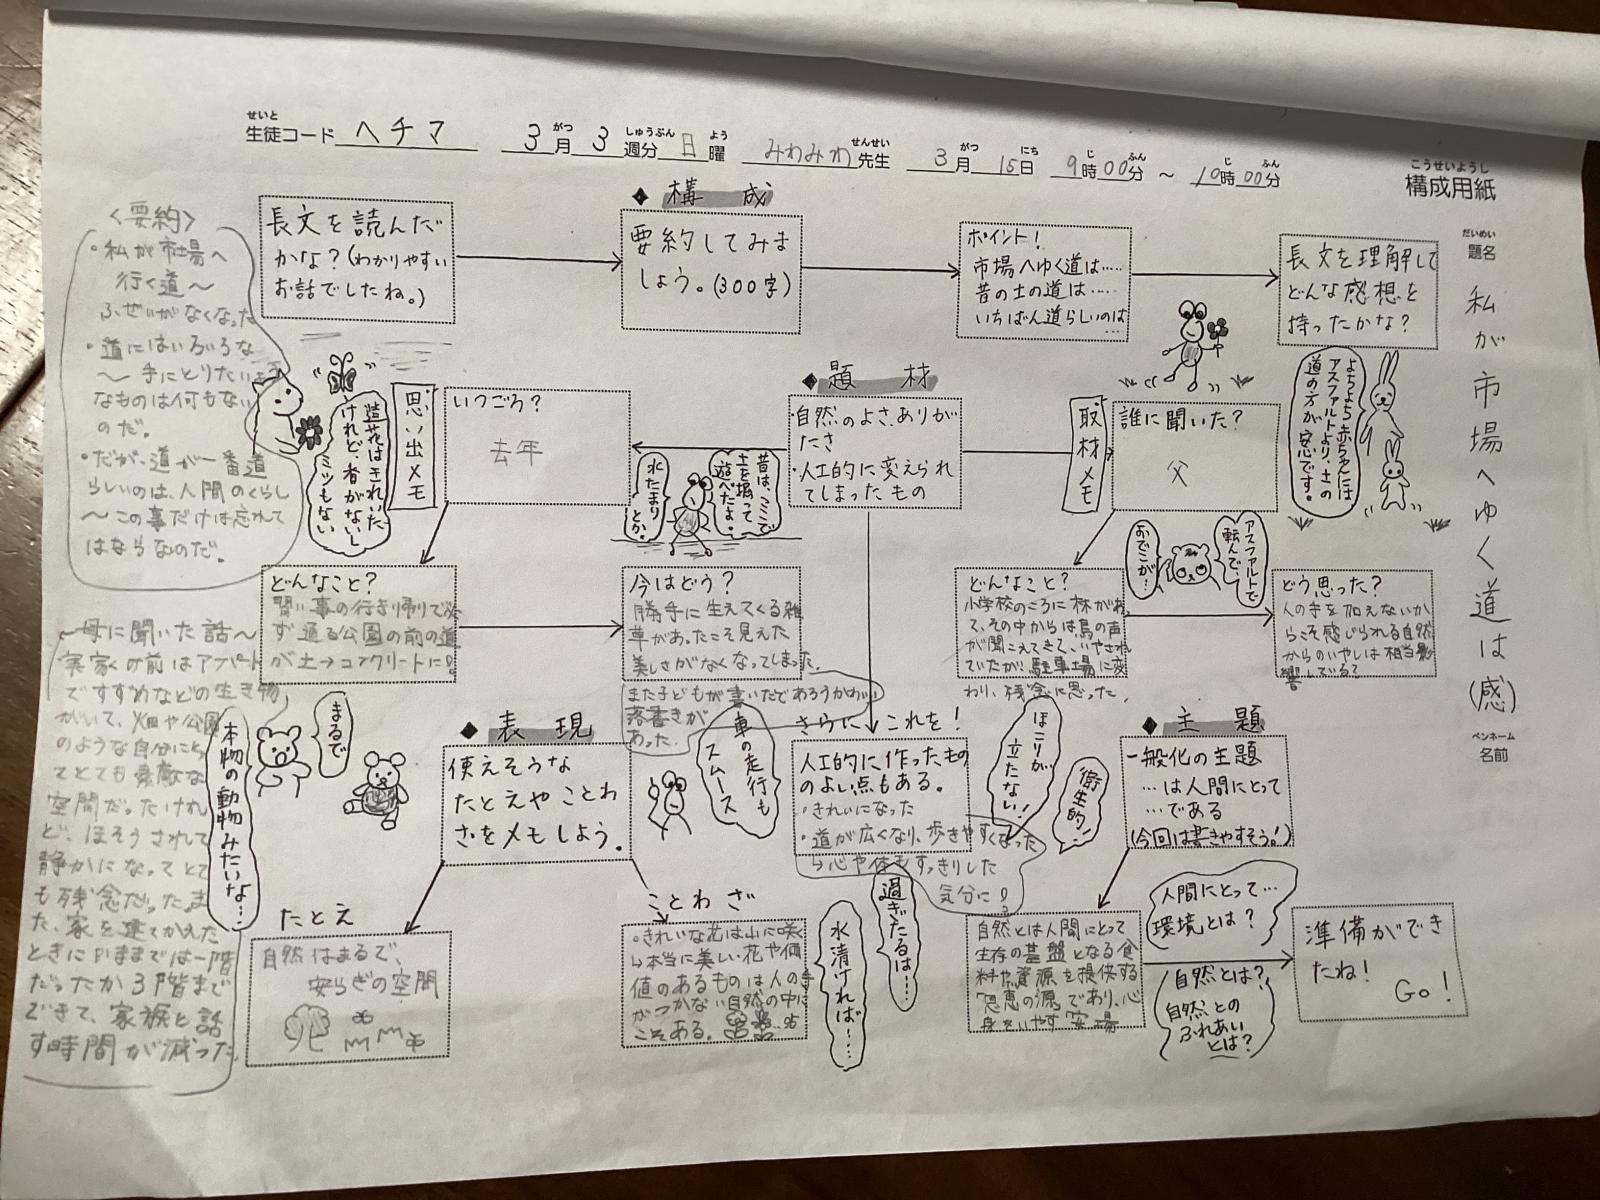 生徒コード ヘチマ 3月3週分日曜 みわみわ先生 3月15日 9時00分 ～ 10時00分
せいと がつ しゅうぶん よう せんせい がつ にち じ ふん じ ふん
こうせいようし
構成用紙
だいめい
題名
私が市場へゆく道は(感)
ペンネーム
名前
◆構 成
長文を読んだ
かな？(わかりやすい
お話でしたね。)
要約してみま
しょう。(300字)
ポイント！
市場へゆく道は……
昔の土の道は……
いちばん道らしいのは…
長文を理解して
どんな感想を
持ったかな？
〈要約〉
・私が市場へ
行く道～
ふぜいがなくなった
・道にはいろいろな
～手にとりたいような
なものは何もない
のだ。
・だが、道が一番道
らしいのは、人間のくらし
～この事だけは忘れて
はならなのだ。
◆題 材
・自然のよさ、ありが
たさ
・人工的に変えられ
てしまったもの
取材メモ
誰に聞いた？
父
思い出メモ
いつごろ？
去年
造花はきれいだ
けれど、香がないし
ミツもない
昔は、ここで
土を掘って
遊べたよ。
水たまり
とか。
よちよち赤ちゃんには
アスファルトより、土の
道の方が、安心です。
アスファルトで
転んで、
おでこが…
どんなこと？
習い事の行き帰りで必
ず通る公園の前の道
が土→コンクリートに！
今はどう？
勝手に生えてくる雑
草があったこそ見えた
美しさがなくなってしまった。
また子どもが書いたであろうかわいい
落書きが
あった。
どんなこと？
小学校のころに林があっ
て、その中からは鳥の声
が聞こえてきて、いやされ
ていたが、駐車場に変
わり、残念に思った。
どう思った？
人の手を加えないか
らこそ感じられる自然
からのいやしは相当影
響している？
母に聞いた話～
実家の前はアパート
ですずめなどの生き物
がいて、畑や公園
のような自分にとっ
てとても素敵な
空間だったけれ
ど、ほそうされて
静かになってとて
も残念だった。ま
た、家を建てかえた
ときに今までは一階
だったが3階まで
できて、家族と話
す時間が減った。
まるで
本物の動物みたいな…
◆表 現
使えそうな
たとえやことわ
ざをメモしよう。
車の走行も
スムース
さらに これを！
人工的に作ったもの
のよい点もある。
・きれいになった
・道が広くなり、歩きやすくなった
↳心や体もすっきりした
気分に！
ほこりが
立たない！
衛生的！
◆主 題
一般化の主題
…は人間にとって
…である
(今回は書きやすそう！)
たとえ
自然はまるで、
安らぎの空間
ことわざ
・きれいな花は山に咲く
↳本当に美しい花や価
値のあるものは人の手
がつかない自然の中に
こそある。
過ぎたるは……
水清ければ……
自然とは人間にとって
生存の基盤となる食
料や資源を提供する
「恩恵の源」であり、心
身をいやす「安場
人間にとって…
環境とは？
自然とは？
自然との
ふれあい
とは？
準備ができ
たね！
Go！